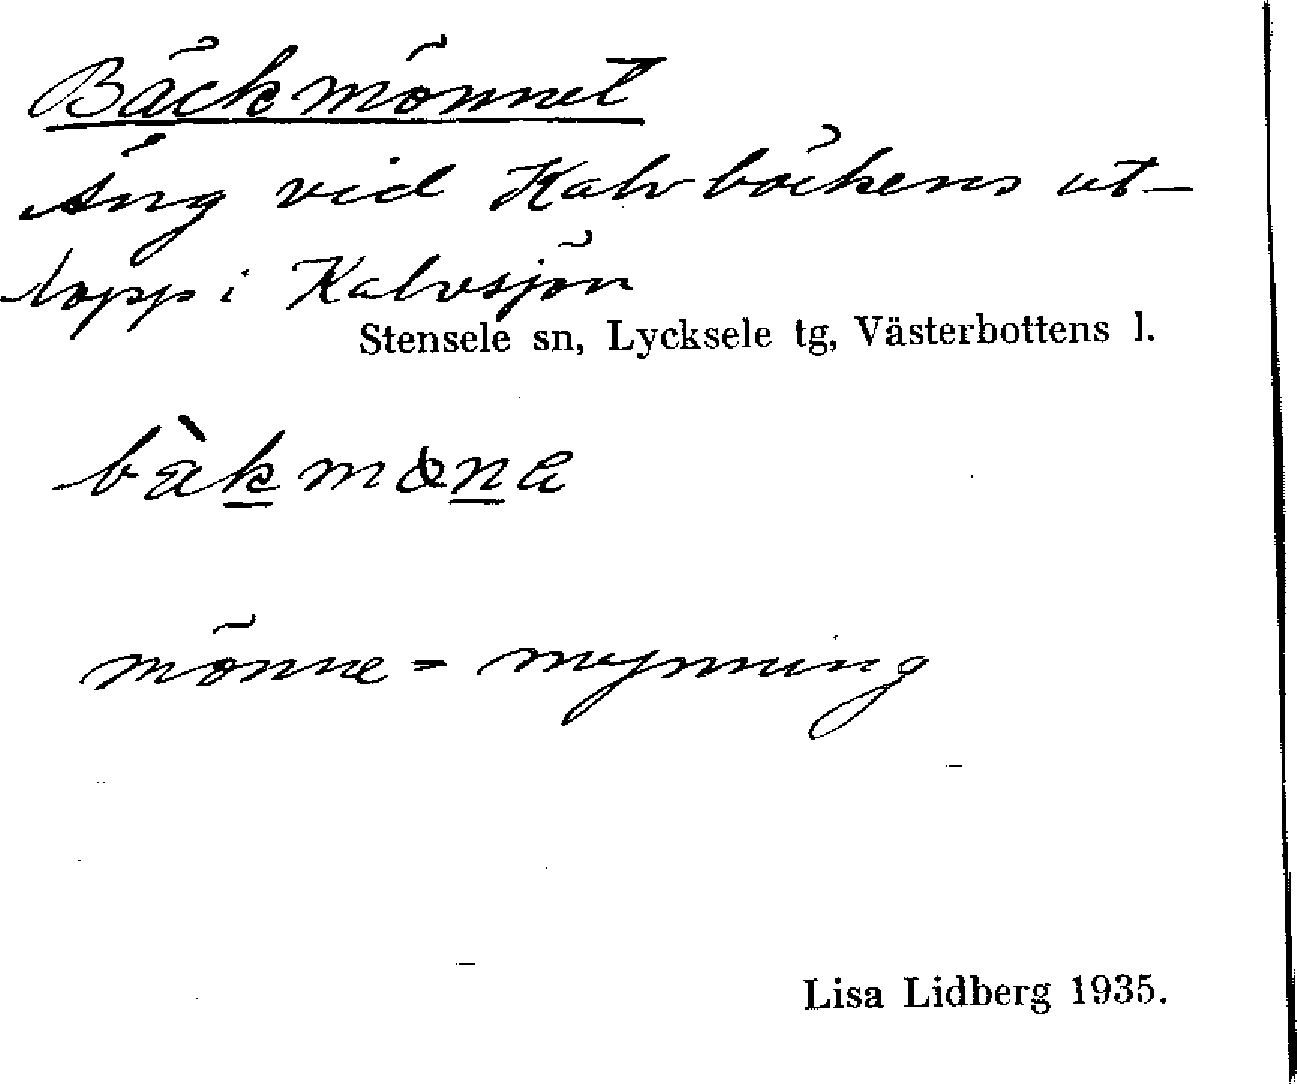 Bäckmönnet
Äng vid Kalvbäckens ut-
lopp i Kalvsjön
Stensele sn, Lycksele tg, Västerbottens l.
bὰkmönα
mönne = mynning
Lisa Lidberg 1935.